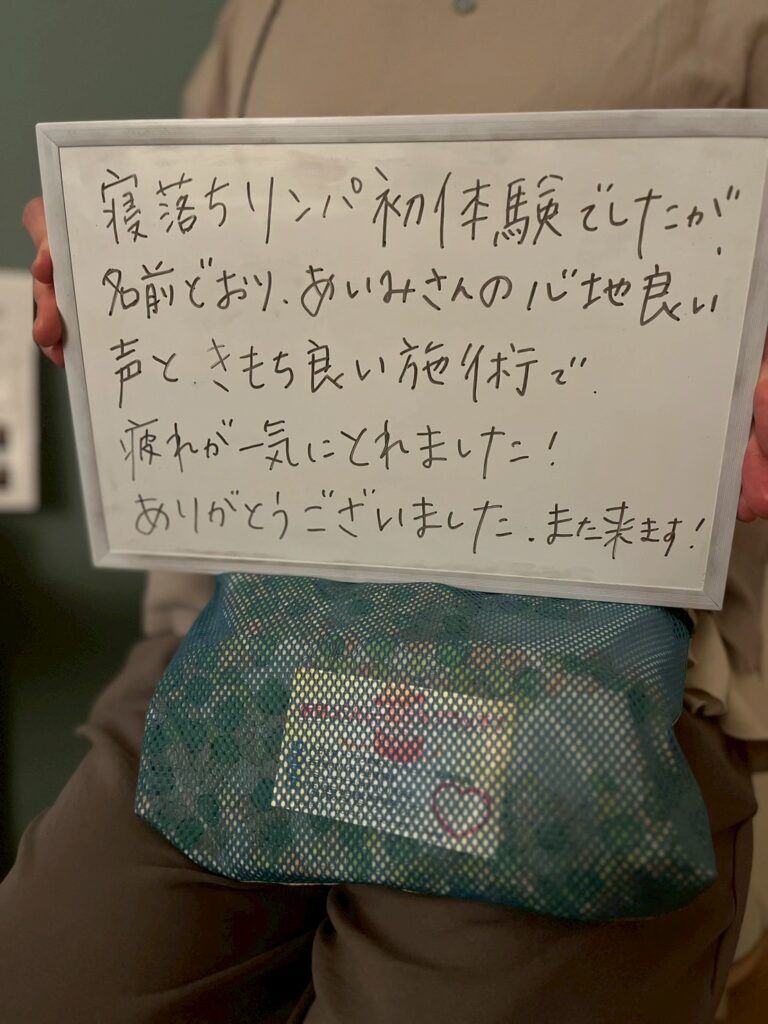 寝落ちリンパ初体験でしたが、
名前どおり、あいみさんの心地良い
声と、きもち良い施術で、
疲れが一気にとれました!
ありがとうございました。また来ます!